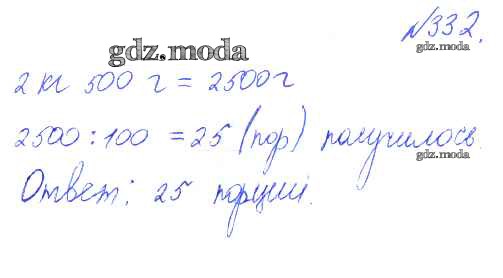 №332.
gdz.moda
2 кг 500 г = 2500 г
2500 : 100 = 25 (пор) получилось.
gdz.moda
Ответ: 25 порций.
gdz.moda